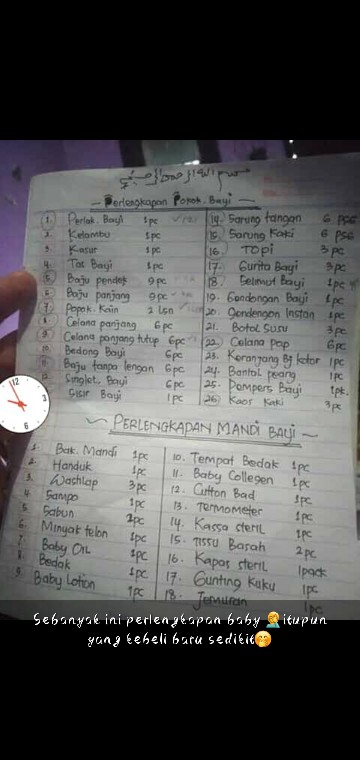 بسم الله الرحمن الرحيم
~ Perlengkapan Popok. Bayi ~
1. Perlak. Bayi 1pc
2. Kelambu 1pc
3. Kasur 1pc
4. Tas Bayi 1pc
5. Baju pendek 9pc
6. Baju panjang 9pc
7. Popok. Kain 2 lsn
8. Celana panjang 6pc
9. Celana panjang tutup 6pc
10. Bedong Bayi 6pc
11. Baju tanpa lengan 6pc
Singlet. Bayi 6pc
Sisir Bayi 1pc
14. Sarung tangan 6 psg
15. Sarung Kaki 6 psg
16. TOPi 3pc
17. Gurita Bayi 3pc
18. Selimut Bayi 1pc
19. Gendongan Bayi 1pc
20. Gendongan Instan 1pc
21. Botol Susu 3pc
22. Celana Pop 6pc
23. Keranjang Bj kotor 1pc
24. Bantal peang 1pc
25. Pampers Bayi 1pk.
26. Kaos Kaki 3pc
~ PERLENGKAPAN MANDI BAYI ~
1. Bak. Mandi 1pc
2. Handuk 1pc
3. Washlap 3pc
4. Sampo 1pc
5. Sabun 2pc
6. Minyak telon 1pc
7. Baby OIL 1pc
8. Bedak 1pc
9. Baby Lotion 1pc
10. Tempat Bedak 1pc
11. Baby Collegen 1pc
12. Cutton Bad 1pc
13. Termometer 1pc
14. Kassa steril 1pc
15. Tissu Basah 2pc
16. Kapas steril 1pack
17. Gunting Kuku 1pc
18. Jemuran 1pc
12
3
6
9
Sebanyak ini perlengkapan baby 🤦itupun
yang kebeli baru sedikit🤭